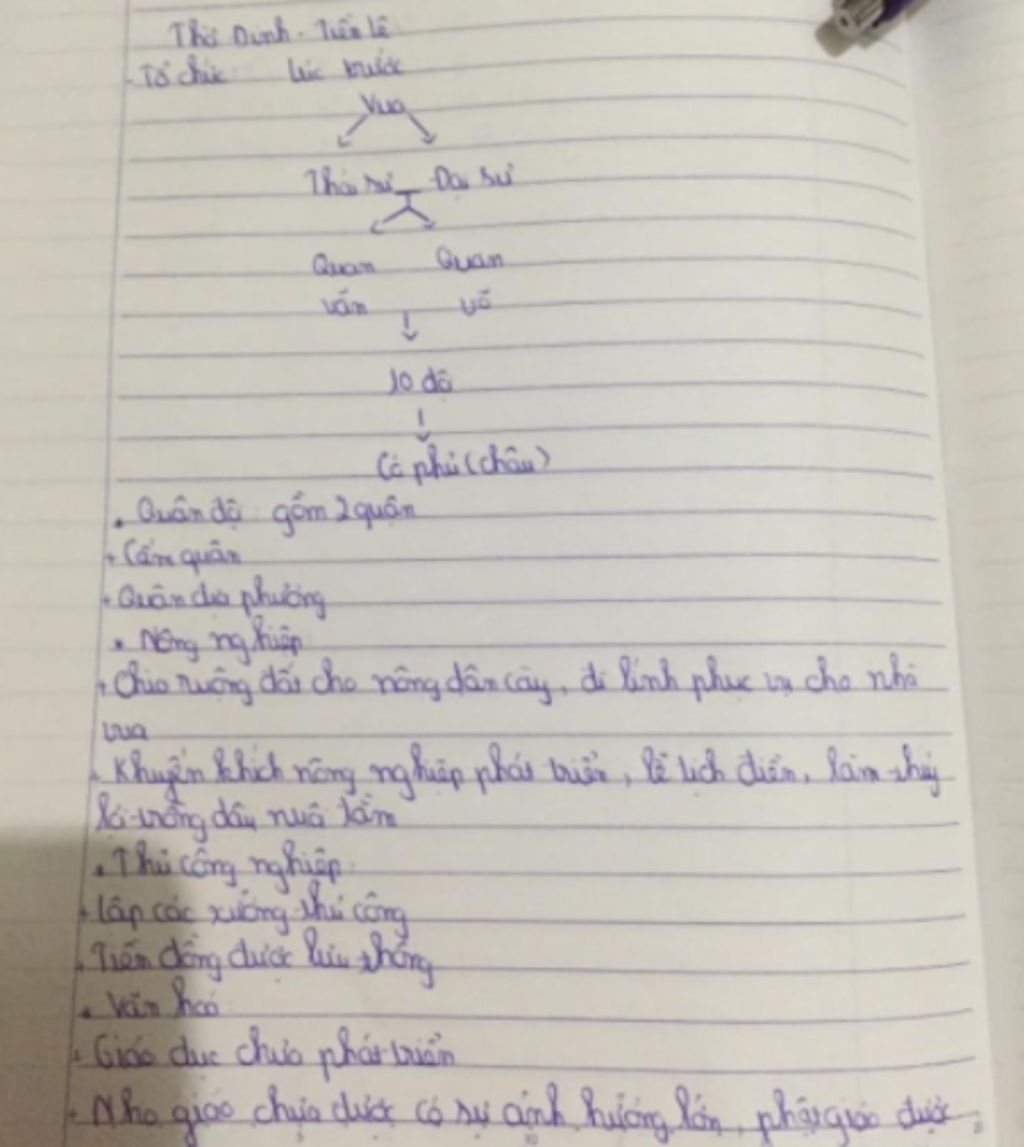 Thời Đinh - Tiền Lê
- Tổ chức lúc trước
Vua
Thái sư - Đại sư
Quan Quan
văn võ
10 đạo
Có phủ (châu)
• Quân đội gồm 2 quân
+ Cấm quân
+ Quân địa phương
• Nông nghiệp
+ Chia ruộng đất cho nông dân cày, đi lính phục vụ cho nhà
vua
- Khuyến khích nông nghiệp phát triển, lễ tịch điền, làm thủy
lợi trồng dâu nuôi tằm
• Thủ công nghiệp:
+ Lập các xưởng thủ công
. Tiền đồng được lưu thông
• Văn hoá
+ Giáo dục chưa phát triển
+ Nho giáo chưa được có sự ảnh hưởng lớn, phật giáo được